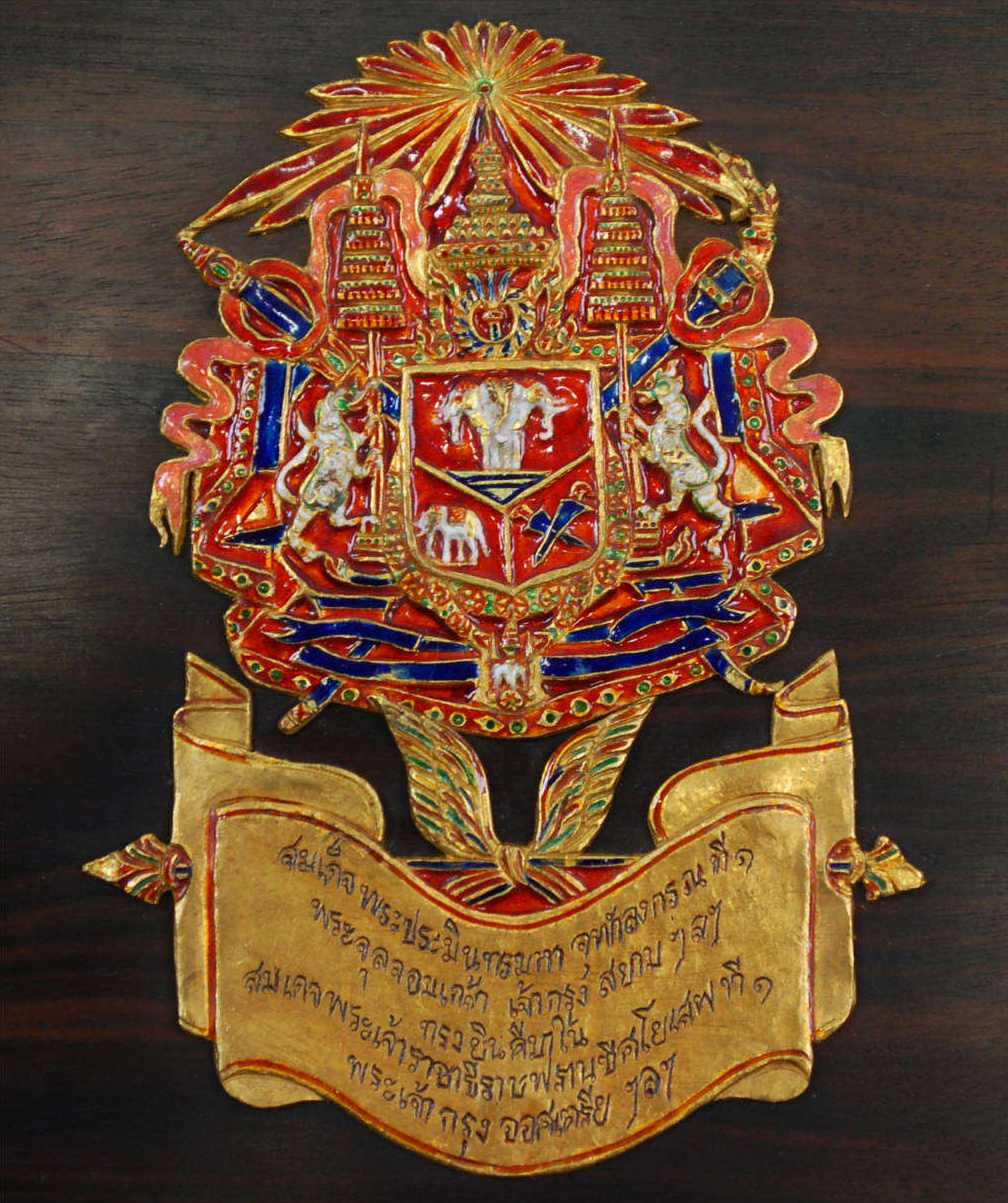 สมเด็จพระประมินทรมหา จุฬาลงกรณ ที่ ๑
พระจุลจอมเกล้า เจ้ากรุง สยาม ๆ ลๆ
ทรงยินดีมาใน
สมเดจพระเจ้าราชาธิราชฟรานซิศโยเสฟ ที่ ๑
พระเจ้ากรุง ออศเตรีย ๆลๆ